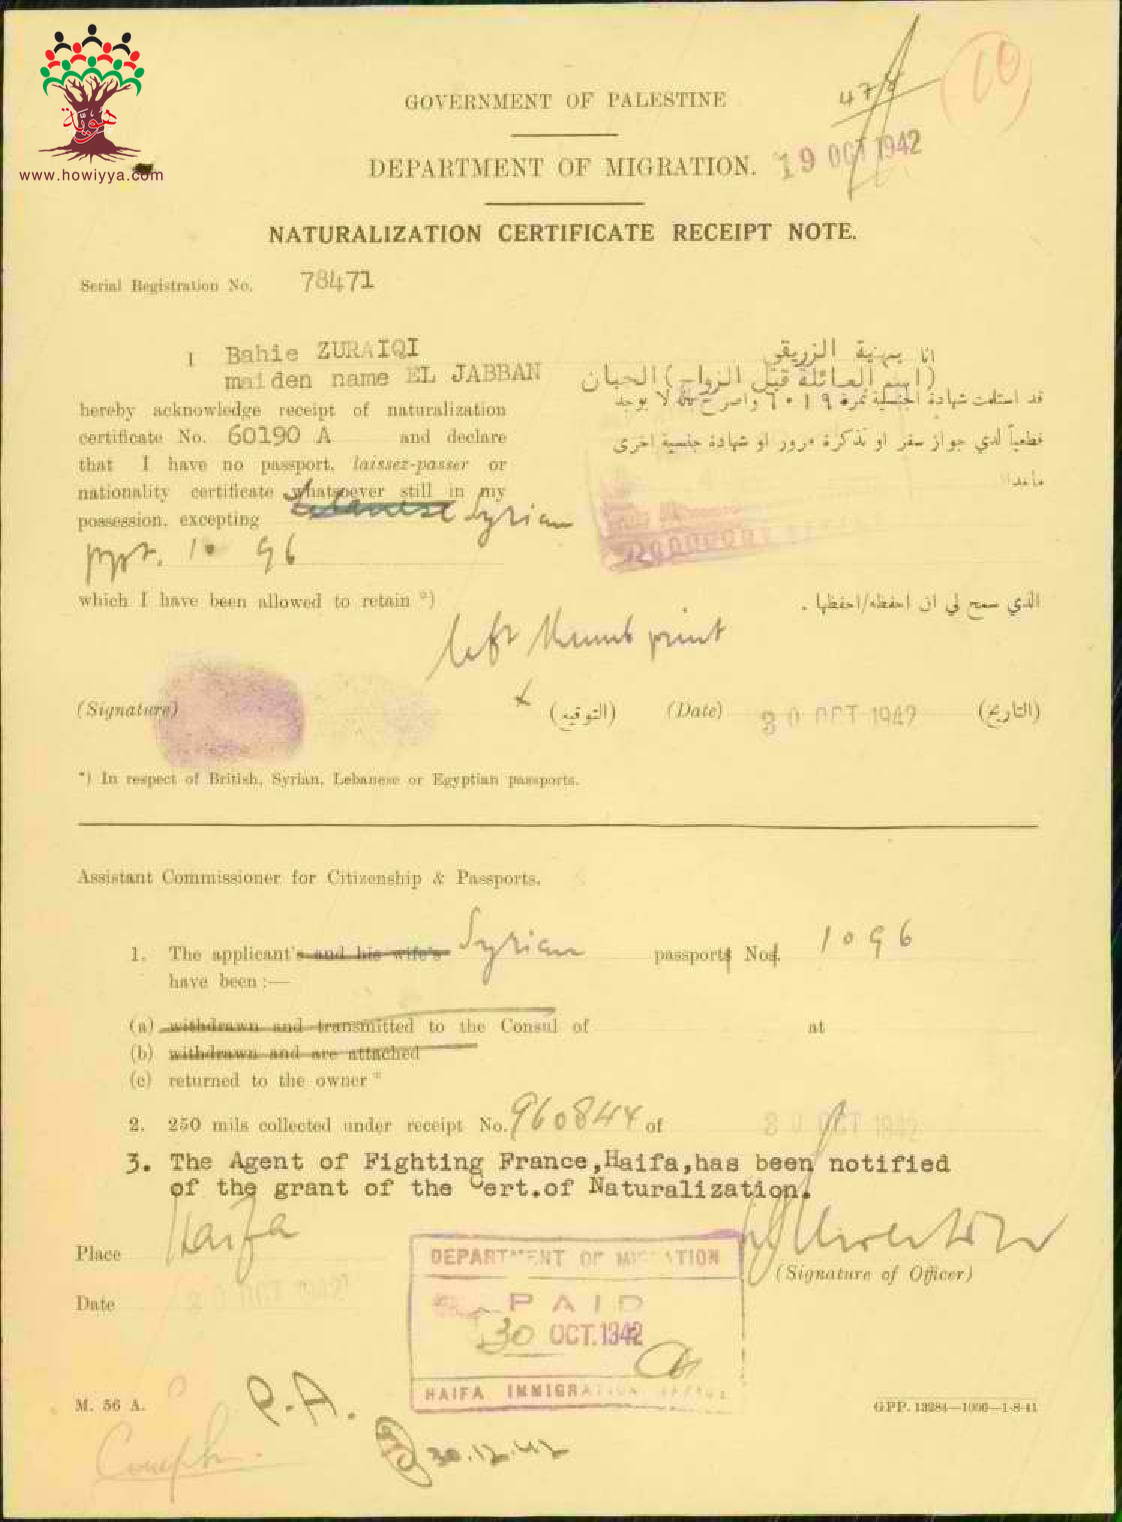 هويّة
www.howiyya.com
GOVERNMENT OF PALESTINE
DEPARTMENT OF MIGRATION.
19 OCT 1942
NATURALIZATION CERTIFICATE RECEIPT NOTE.
Serial Registration No. 78471
I Bahie ZURAIQI
maiden name EL JABBAN
hereby acknowledge receipt of naturalization
certificate No. 60190 A and declare
that I have no passport, laissez-passer or
nationality certificate whatsoever still in my
possession, excepting Lebanese Syrian
ppt. 1096
which I have been allowed to retain *)
انا بهية الزريقي
(اسم العائلة قبل الزواج) الجبان
قد استلمت شهادة الجنسية نمرة ٦٠١٩ واصرح لا يوجد
قطعياً لدي جواز سفر او تذكرة مرور او شهادة جنسية اخرى
ما عدا
الذي سمح لي ان احفظه/احفظها .
left thumb print
(Signature) (التوقيع) (Date) 30 OCT 1942 (التاريخ)
*) In respect of British, Syrian, Lebanese or Egyptian passports.
Assistant Commissioner for Citizenship & Passports.
1. The applicant's and his wife's Syrian passports Nos. 1096
have been :—
(a) withdrawn and transmitted to the Consul of at
(b) withdrawn and are attached
(c) returned to the owner *
2. 250 mils collected under receipt No. 960844 of 30 OCT 1942
3. The Agent of Fighting France,Haifa,has been notified
of the grant of the Cert.of Naturalization.
Place Haifa
(Signature of Officer)
Date 30 OCT 1942
DEPARTMENT OF MIGRATION
PAID
30 OCT.1942
HAIFA IMMIGRATION OFFICE
M. 56 A.
P.A.
GPP. 13284—1000—1-8-41
30.12.42